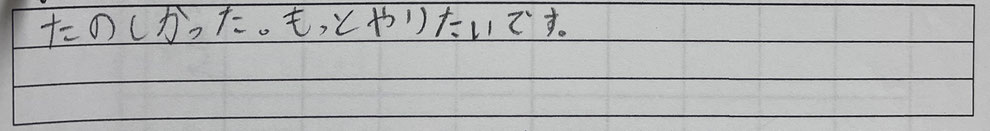 たのしかった。もっとやりたいです。